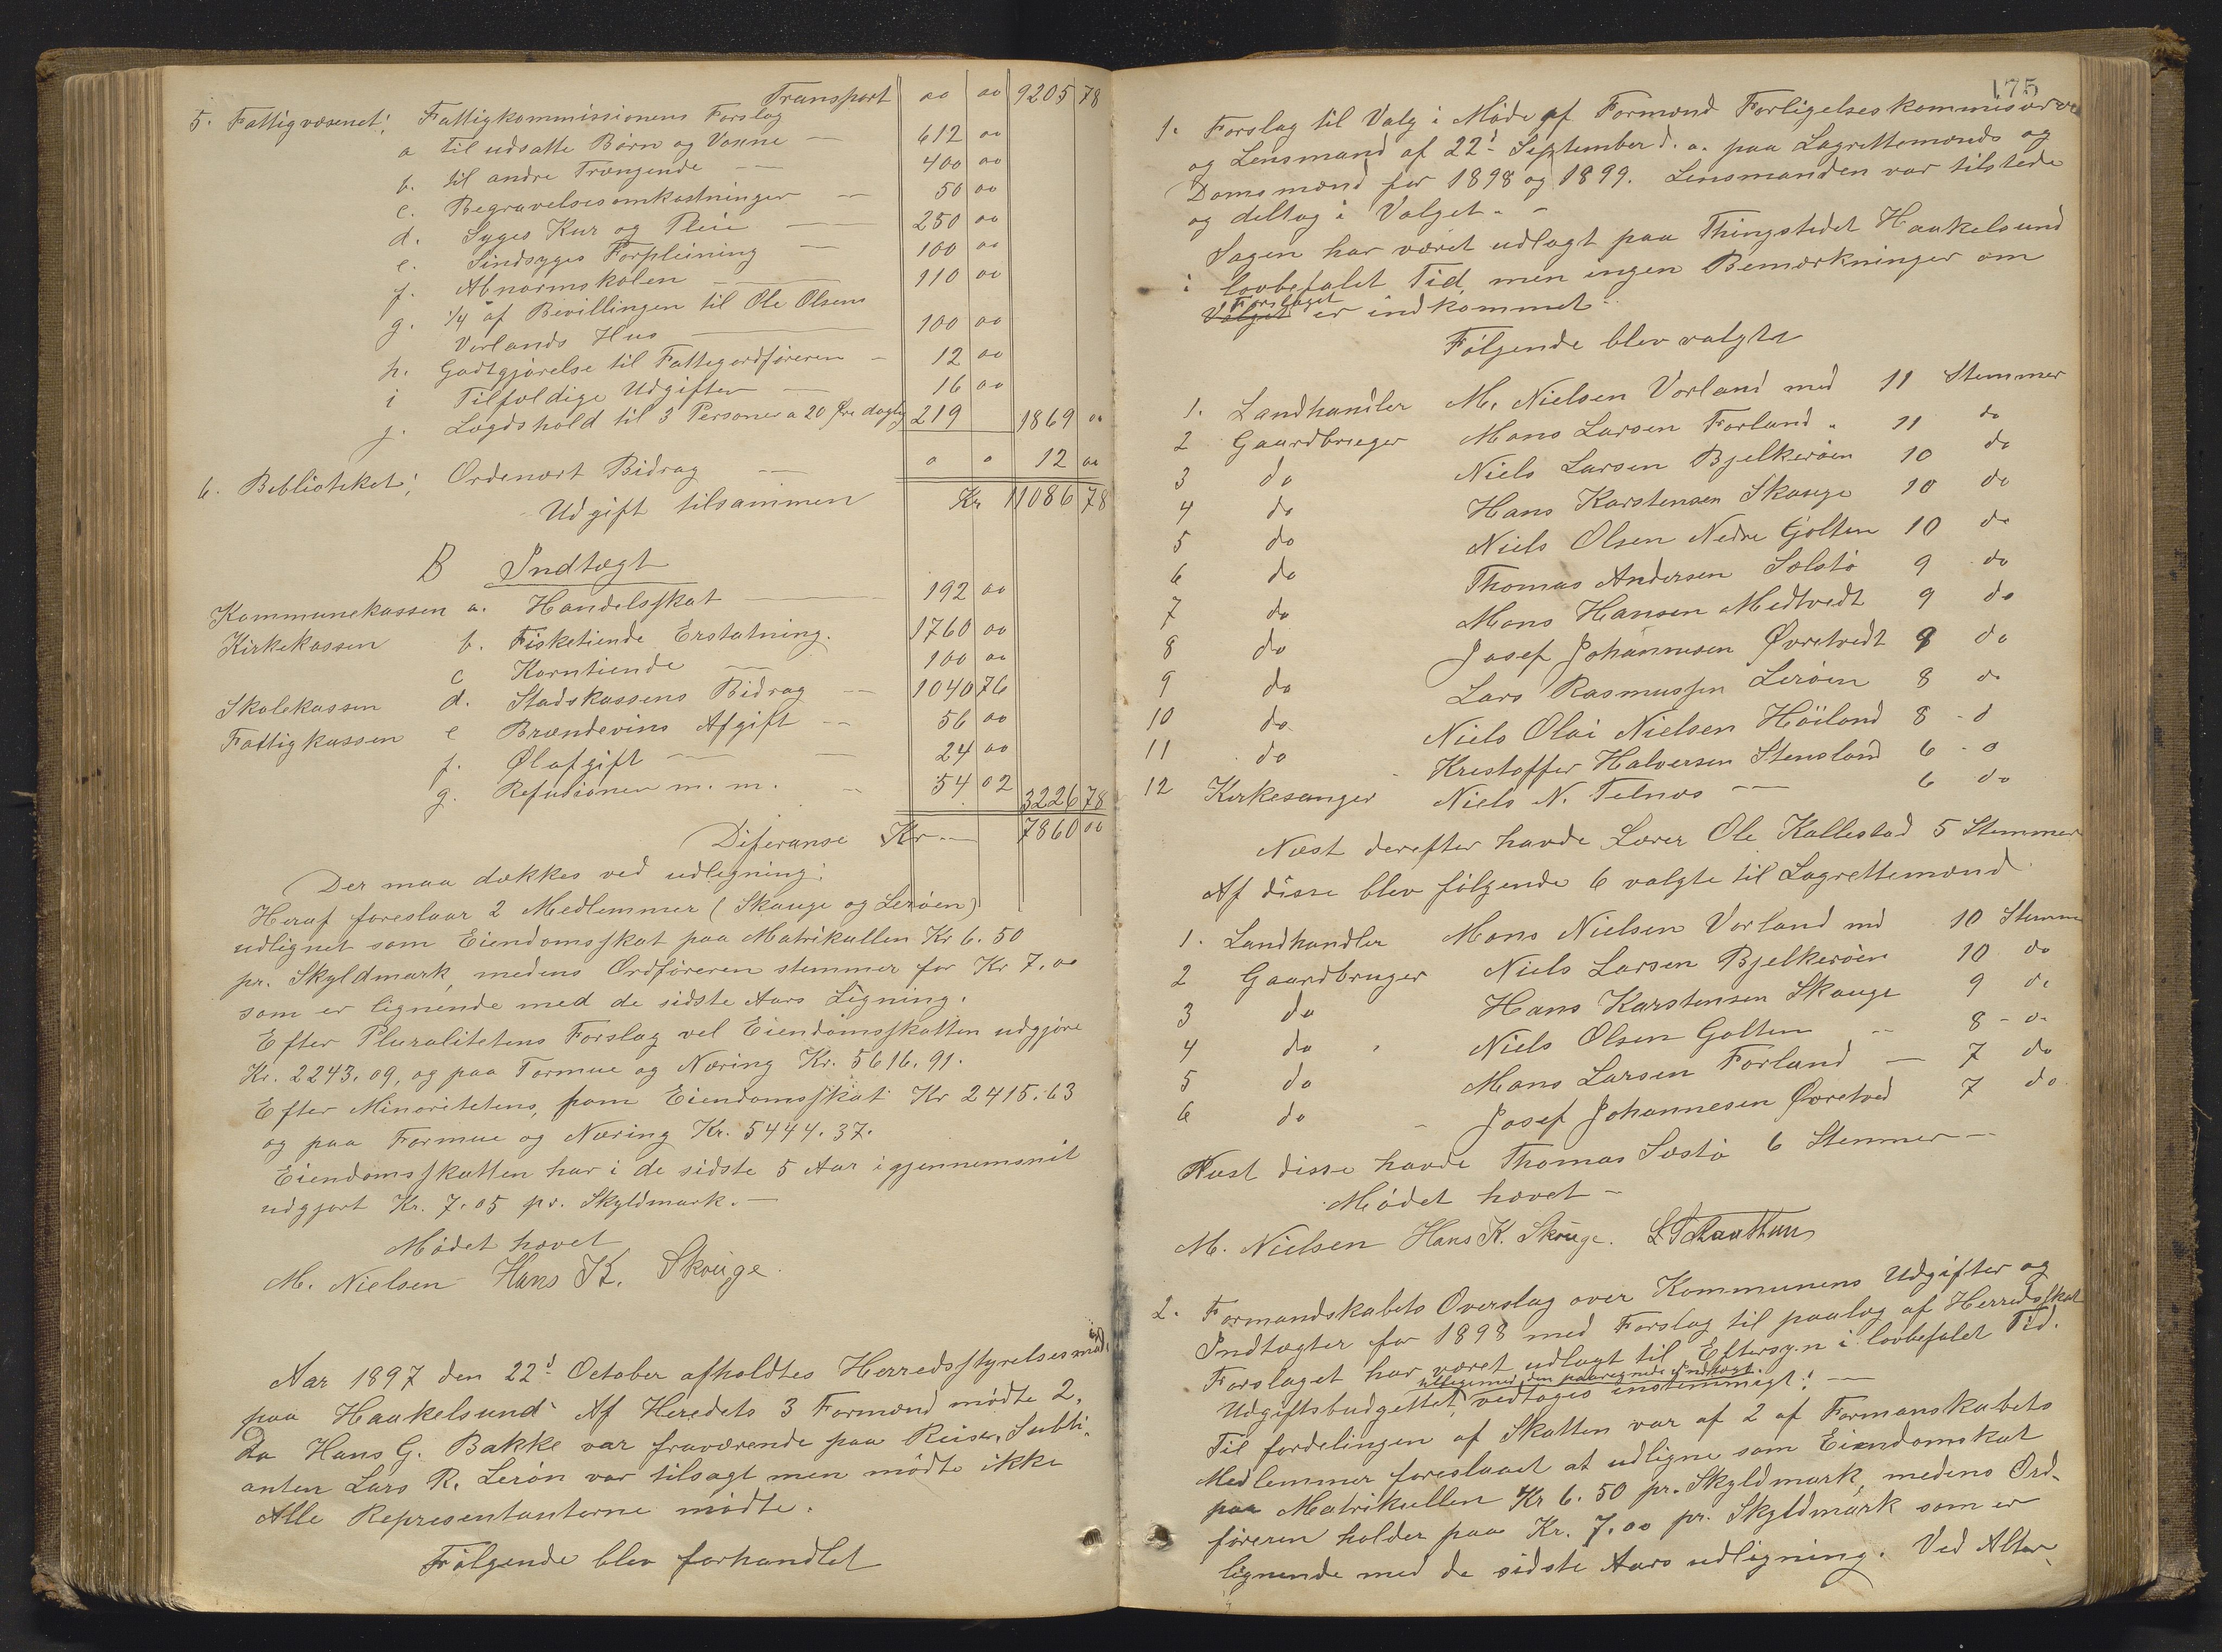 Transport " " 9205 78
5. Fattigvæsenet; Fattigkommissionens Forslag
a til udsatte Børn og Voxne — 612 00
b. til andre Trængende — 400 00
c. Begravelsesomkostninger — 50 00
d. Syges Kur og Pleie — 250 00
e. Sindsyges Forpleining — 100 00
f. Abnormskolen — 110 00
g. 1/4 af Bevillingen til Ole Olsens
Vorlands Hus — 100 00
h. Godtgjørelse til Fattigordføreren — 12 00
i Tilfældige Udgifter — 16 00
j. Lægdshold til 3 Personer a 20 Øre daglig 219 1869 00
6. Biblioteket; Ordenært Bidrag — " " 12 00
Udgift tilsammen Kr 11086 78
B Indtægt
Kommunekassen a. Handelsskat — 192 00
Kirkekassen b. Fisketiende Erstatning. 1760 00
c Korntiende — 100 00
Skolekassen d. Stadskassens Bidrag — 1040 76
Fattigkassen e Brændevins Afgift — 56 00
f. Ølafgift — 24 00
g. Refusioner m. m. — 54 02 3226 78
Diferanse Kr — 7860 00
Der maa dækkes ved udligning;
Heraf foreslaar 2 Medlemmer (Skauge og Lerøen)
udlignet som Eiendomsskat paa Matrikullen Kr 6.50
pr. Skyldmark, medens Ordføreren stemmer for Kr 7.00
som er lignende med de sidste Aars Ligning.
Efter Pluralitetens Forslag vel Eiendomsskatten udgjøre
Kr. 2243.09, og paa Formue og Næring Kr. 5616.91.
Efter Minoritetens, som Eiendomsskat Kr 2415.63
og paa Formue og Næring Kr. 5444.37.
Eiendomsskatten har i de sidste 5 Aar igjennemsnit
udgjort Kr. 7.05 pr. Skyldmark. —
Mødet hævet
M. Nielsen Hans K. Skouge.
Aar 1897 den 22d October afholdtes Herredsstyrelsesmøde
paa Haakelsund. Af Heredets 3 Formænd mødte 2,
da Hans G. Bakke var fraværende paa Reiser, Subti-
anten Lars R. Lerøn var tilsagt men mødte ikke
Alle Representanterne mødte.
Følgende blev forhandlet
175
1. Forslag til Valg i Møde af Formænd Forligelseskommisærer
og Lensmand af 22d September d. a. paa Lagrettemænds og
Domsmænd for 1898 og 1899. Lensmanden var tilstede
og deltog i Valget. —
Sagen har været udlagt paa Thingstedet Haakelsund
i lovbefalet Tid, men ingen Bemærkninger om
Forslaget
Valget er indkommet.
Følgende blev valgte
1. Landhandler M. Nielsen Vorland med 11 Stemmer
2 Gaardbruger Mons Larsen Forland " 11 do
3 do Niels Larsen Bjelkerøen 10 do
4 do Hans Karstensen Skauge 10 do
5 do Niels Olsen Nedre Golten 10 do
6 do Thomas Andersen Solstø 9 do
7 do Mons Hansen Medtvedt 9 do
8 do Josef Johannesen Øvretvedt 8 do
9 do Lars Rasmussen Lerøen 8 do
10 do Niels Olai Nielsen Høiland 8 - d
11 do Kristoffer Halversen Stensland 6 - o
12 Kirkesanger Niels N. Telnæs — 6 do
Næst derefter havde Lærer Ole Kallestad 5 Stemmer
Af disse blev følgende 6 valgte til Lagrettemænd
1. Landhandler Mons Nielsen Vorland md 10 Stemm
2 Gaardbruger Niels Larsen Bjelkerøen 10 do
3 do Hans Karstensen Skauge 9 do
4 do Niels Olsen Golten — 8 - do
5 do Mons Larsen Forland — 7 do
6 do Josef Johannesen Øvretved 7 do
Næst disse havde Thomas Søstø 6 Stemmer —
Mødet hævet —
M. Nielsen Hans K. Skouge.
2. Formandskabets Overslag over Kommunens Udgifter og
Indtægter for 1898 med Forslag til paalæg af Herredsskat
Forslaget har været udlagt til Eftersyn i lovbefalet Tid.
den paaregnede Indtægt
Udgiftsbudgettet, vedtoges enstemmigt: —
Til fordelingen af Skatten var af 2 af Formanskabets
Medlemmer foreslaaet at udligne som Eiendomskat
paa Matrikullen Kr 6.50 pr. Skyldmark, medens Ord-
føreren holder paa Kr. 7.00 pr. Skyldmark som er
lignende med de sidste Aars udligning. Ved Alter-